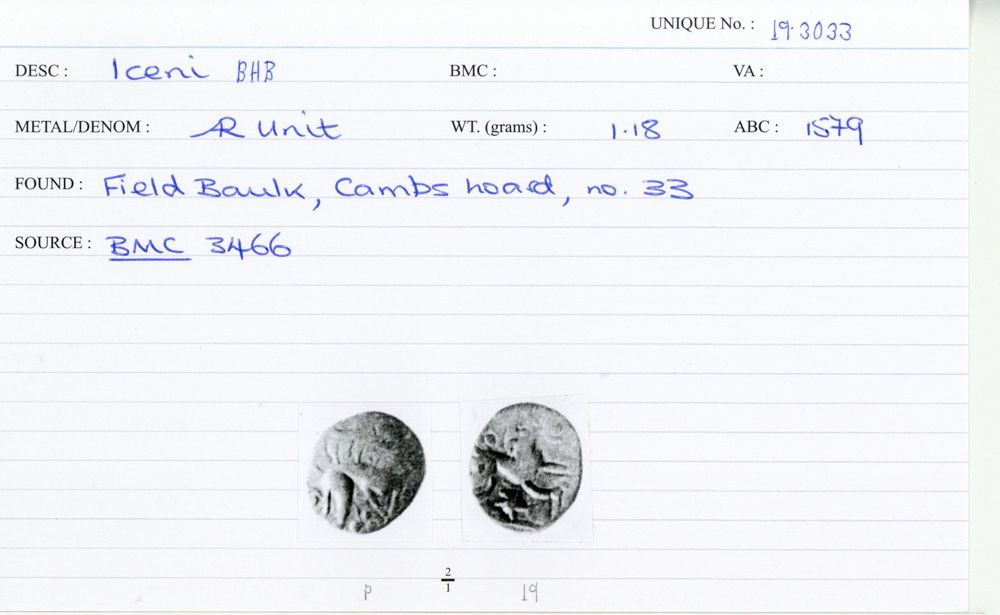 UNIQUE No. : 19.3033
DESC : Iceni BHB BMC : VA :
METAL/DENOM : AR Unit WT. (grams) : 1.18 ABC : 1579
FOUND : Field Baulk, Cambs hoard, no. 33
SOURCE : BMC 3466
2/1
P 19